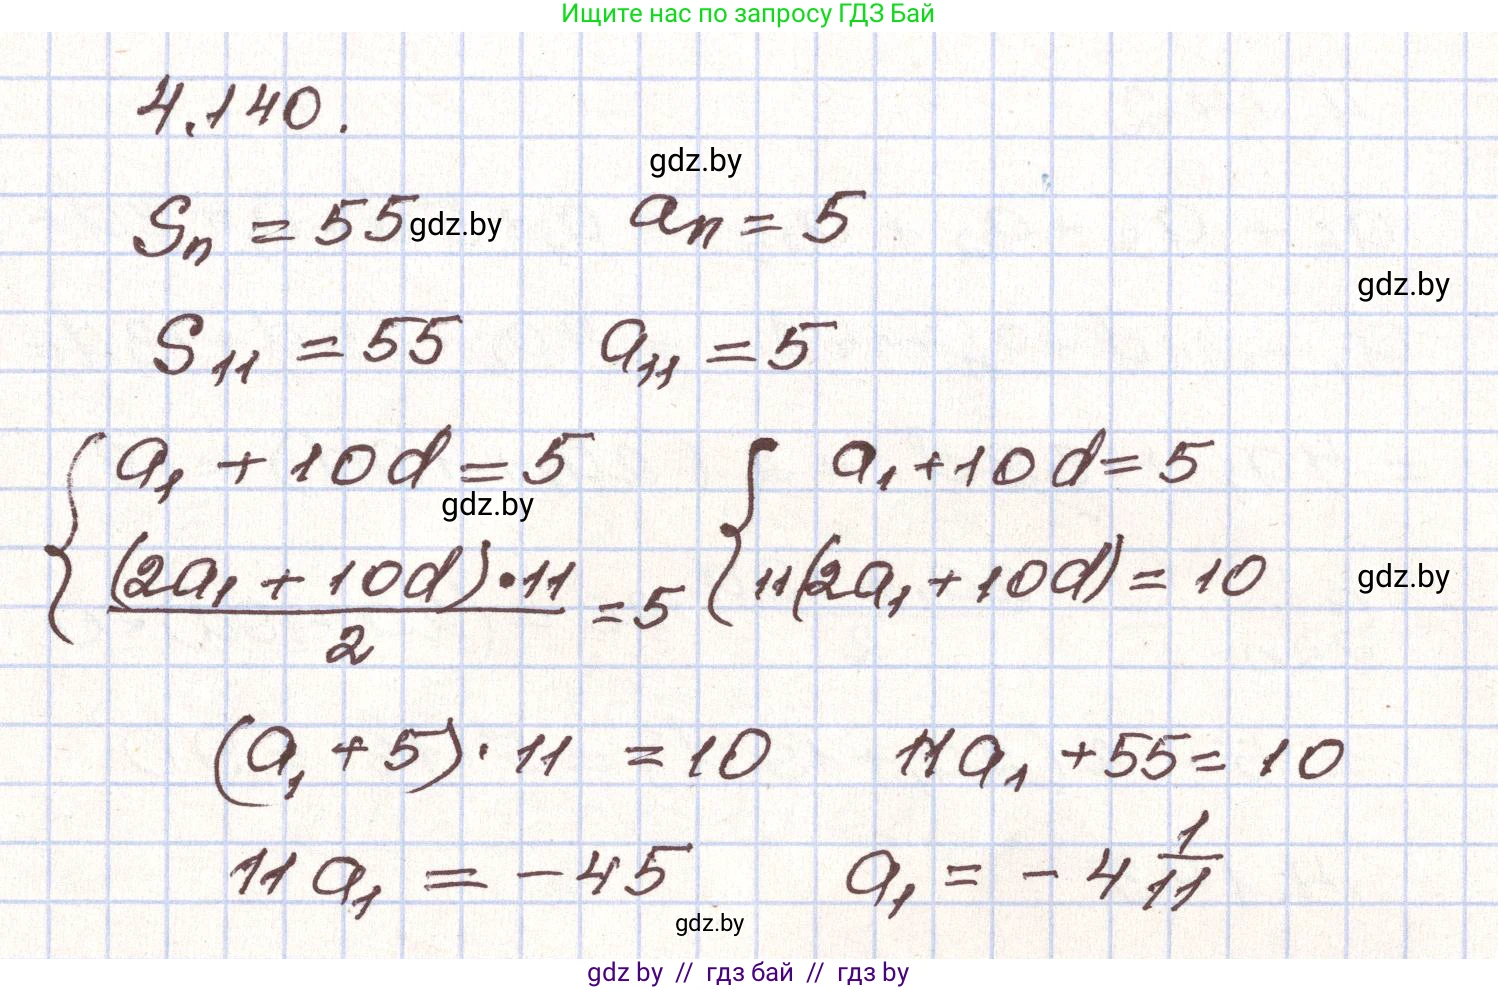 Ищите нас по запросу ГДЗ Бай
4.140.
gdz.by
Sₙ = 55 gdz.by aₙ = 5
gdz.by
S₁₁ = 55 a₁₁ = 5
{ a₁ + 10d = 5 { a₁ + 10d = 5
gdz.by
(2a₁ + 10d) · 11 / 2 = 5 11(2a₁ + 10d) = 10 gdz.by
(a₁ + 5) · 11 = 10 11a₁ + 55 = 10
11a₁ = -45 a₁ = -4 1/11
gdz.by
gdz by // гдз бай // гдз by